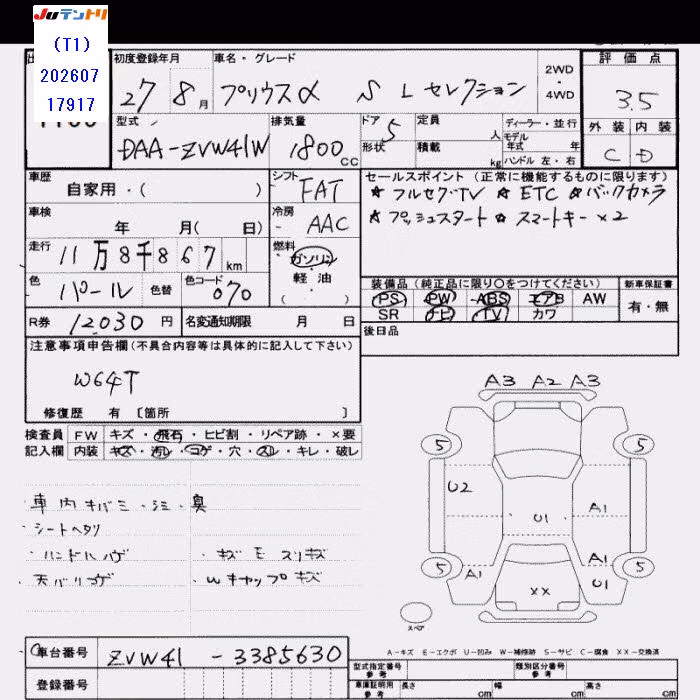 JUテントリ
(T1)
202607
17917
初度登録年月
27 8月
車名・グレード
プリウスα S Lセレクション
2WD
4WD
評価点
3.5
外装 内装
C D
型式
DAA-ZVW41W
排気量
1800cc
ドア 5
形状
定員 人
積載 kg
ディーラー・並行
モデル年式 年式
ハンドル 左・右
車歴
自家用・( )
シフト
FAT
セールスポイント(正常に機能するものに限ります)
☆フルセグTV ☆ETC ☆バックカメラ
☆プッシュスタート ☆スマートキー×2
車検
年 月( 日)
冷房
AAC
走行
11万8千867km
燃料
ガソリン
軽油
( )
色
パール
色替
色コード
070
装備品(純正品に限り○をつけてください)
PS PW ABS エアB AW
SR ナビ TV カワ
新車保証書
有・無
R券 12030円
名変通知期限 月 日
後日品
注意事項申告欄(不具合内容等は具体的に記入して下さい)
W64T
修復歴 有 [箇所 ]
検査員
記入欄
FW キズ・飛石・ヒビ割・リペア跡・×要
内装 キズ・汚レ・コゲ・穴・スレ・キレ・破レ
・車内キバミ・シミ・臭
・シートヘタリ
・ハンドルハゲ ・キズモスリキズ
・天バリコゲ ・Wキャップキズ
A3 A2 A3
5 5
U2
A1
U1
5 A1 A1 5
U1
XX
スペア
A-キズ E-エクボ U-凹み W-補修跡 S-サビ C-腐食 XX-交換済
車台番号 ZVW41-3385630
登録番号
型式指定番号 参考
類別区分番号 参考
車庫証明用 参考
長さ cm 幅 cm 高さ cm